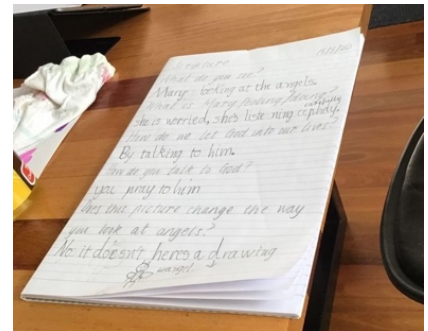 What do you see?
Mary looking at the angels.
What is Mary feeling/doing?
she is worried, she's liste ning carefully.
How do we let God into our lives?
By talking to him.
How do you talk to God?
you pray to him
Does this picture change the way
you look at angels?
No it doesn't, heres a drawing